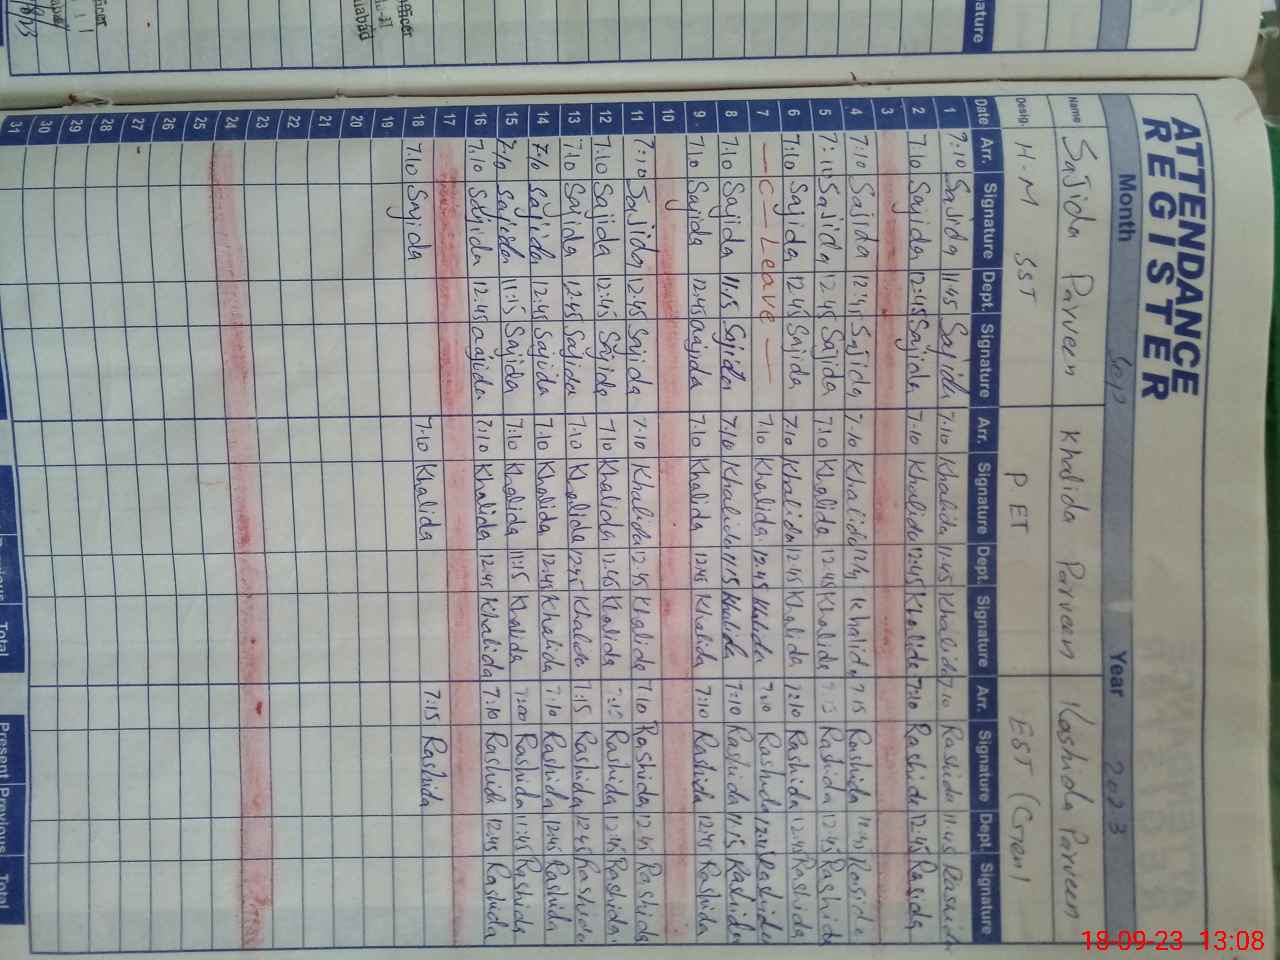 ATTENDANCE
REGISTER
Month Sep Year 2023
Name Sajida Parveen Khalida Parveen Rashida Parveen
Desig. H.M SST P.ET EST (Gen)
Date Arr. Signature Dept. Signature Arr. Signature Dept. Signature Arr. Signature Dept. Signature
1 7:10 Sajida 11:45 Sajida 7:10 Khalida 11:45 Khalida 7:10 Rashida 11:45 Rashida
2 7:10 Sajida 12:45 Sajida 7:10 Khalida 12:45 Khalida 7:10 Rashida 12:45 Rasida
3
4 7:10 Sajida 12:45 Sajida 7:10 Khalida Khalida 7:15 Rashida 12:45 Rasida
5 Sajida 12:45 Sajida 7:10 Khalida 12:45 Khalida Rashida 12:45 Rashida
6 7:10 Sajida 12:45 Sajida 7:10 Khalida 12:45 Khalida 7:10 Rashida 12:45 Rashida
7 — C — Leave — 7:10 Khalida 12:45 Khalida Rashida Rashida
8 7:10 Sajida 11:15 Sajida 7:10 Khalida 11:15 Khalida 7:10 Rashida 11:15 Rashida
9 7:10 Sajida 12:45 Sajida 7:10 Khalida 12:45 Khalida 7:10 Rashida 12:45 Rashida
10
11 7:10 Sajida 12:45 Sajida 7:10 Khalida 12:45 Khalida 7:10 Rashida 12:45 Rashida
12 7:10 Sajida 12:45 Sajida 7:10 Khalida 12:45 Khalida Rashida 12:45 Rashida
13 7:10 Sajida 12:45 Sajida 7:10 Khalida 12:45 Khalida 7:15 Rashida 12:45 Rashida
14 7:10 Sajida 12:45 Sajida 7:10 Khalida 12:45 Khalida 7:10 Rashida 12:45 Rashida
15 7:10 Sajida 11:15 Sajida 7:10 Khalida 11:15 Khalida 7:00 Rashida 11:45 Rashida
16 7:10 Sajida 12:45 Sajida 7:10 Khalida 12:45 Khalida 7:10 Rashida 12:45 Rashida
17
18 7:10 Sajida 7:10 Khalida 7:15 Rashida
19
20
21
22
23
24
25
26
27
28
29
30
31
Total Present Previous Total
18-09-23 13:08